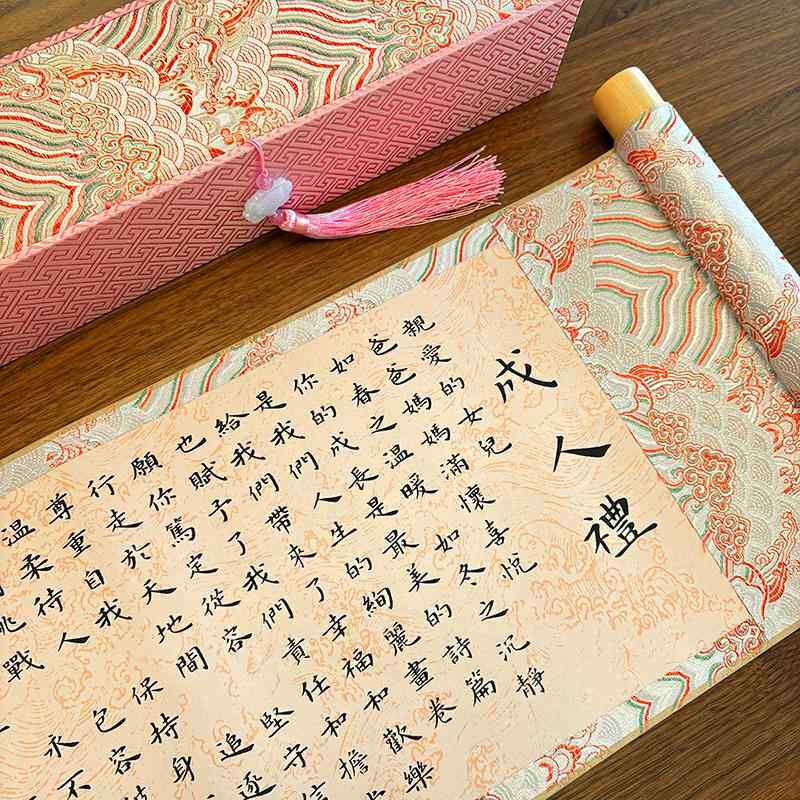 成人禮
親愛的女兒
爸爸媽媽滿懷喜悅
如春之溫暖如冬之沉靜
你的成長是最美的詩篇
是我們人生的絢麗畫卷
給我們帶來了幸福和歡樂
也賦予了我們責任和擔
願你篤定從容堅守信
行走於天地間追逐
尊重自我保持身
溫柔待人包容
戰永不